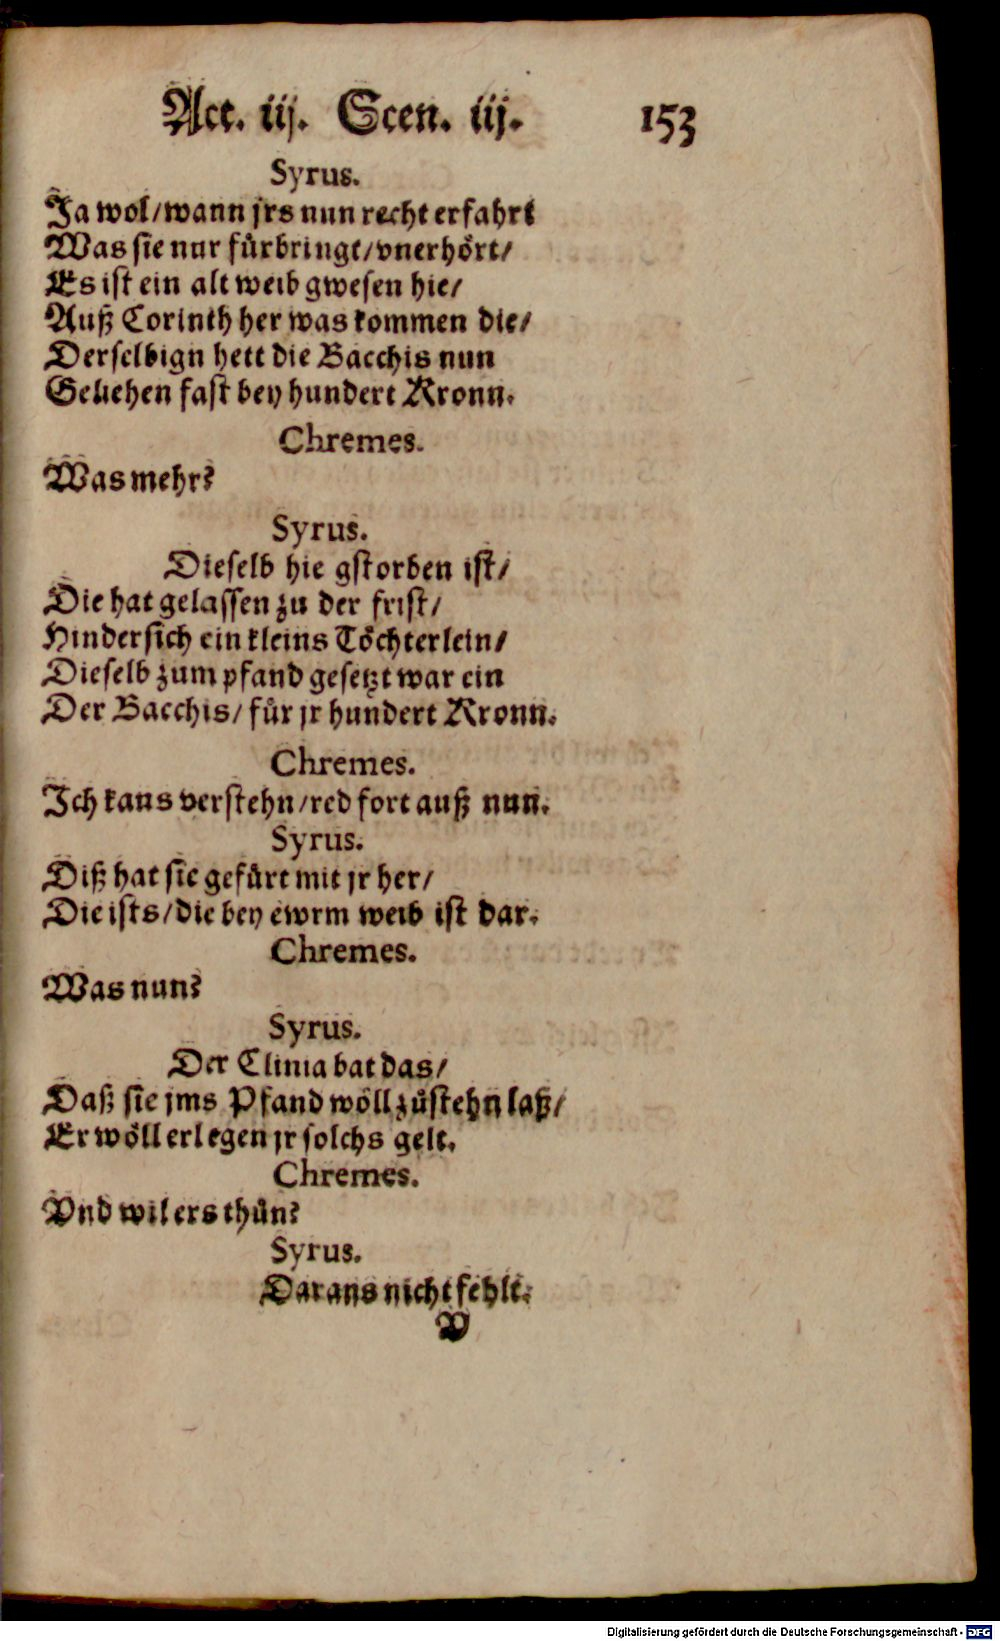 Act. iij. Scen. iij. 153
Syrus.
Ja wol/wann jrs nun recht erfahrt
Was sie nur fürbringt/vnerhört/
Es ist ein alt weib gwesen hie/
Auß Corinth her was kommen die/
Derselbign hett die Bacchis nun
Geliehen fast bey hundert Kronn.
Chremes.
Was mehr?
Syrus.
Dieselb hie gstorben ist/
Die hat gelassen zu der frist/
Hindersich ein kleins Töchterlein/
Dieselb zum pfand gesetzt war ein
Der Bacchis/ für jr hundert Kronn.
Chremes.
Ich kans verstehn/red fort auß nun.
Syrus.
Diß hat sie gefürt mit jr her/
Die ists/die bey ewrm weib ist dar.
Chremes.
Was nun?
Syrus.
Der Clinia bat das/
Daß sie jms Pfand wöll zůstehn laß/
Er wöll erlegen jr solchs gelt.
Chremes.
Vnd wil ers thůn?
Syrus.
Darans nicht fehlt.
V
Digitalisierung gefördert durch die Deutsche Forschungsgemeinschaft - DFG